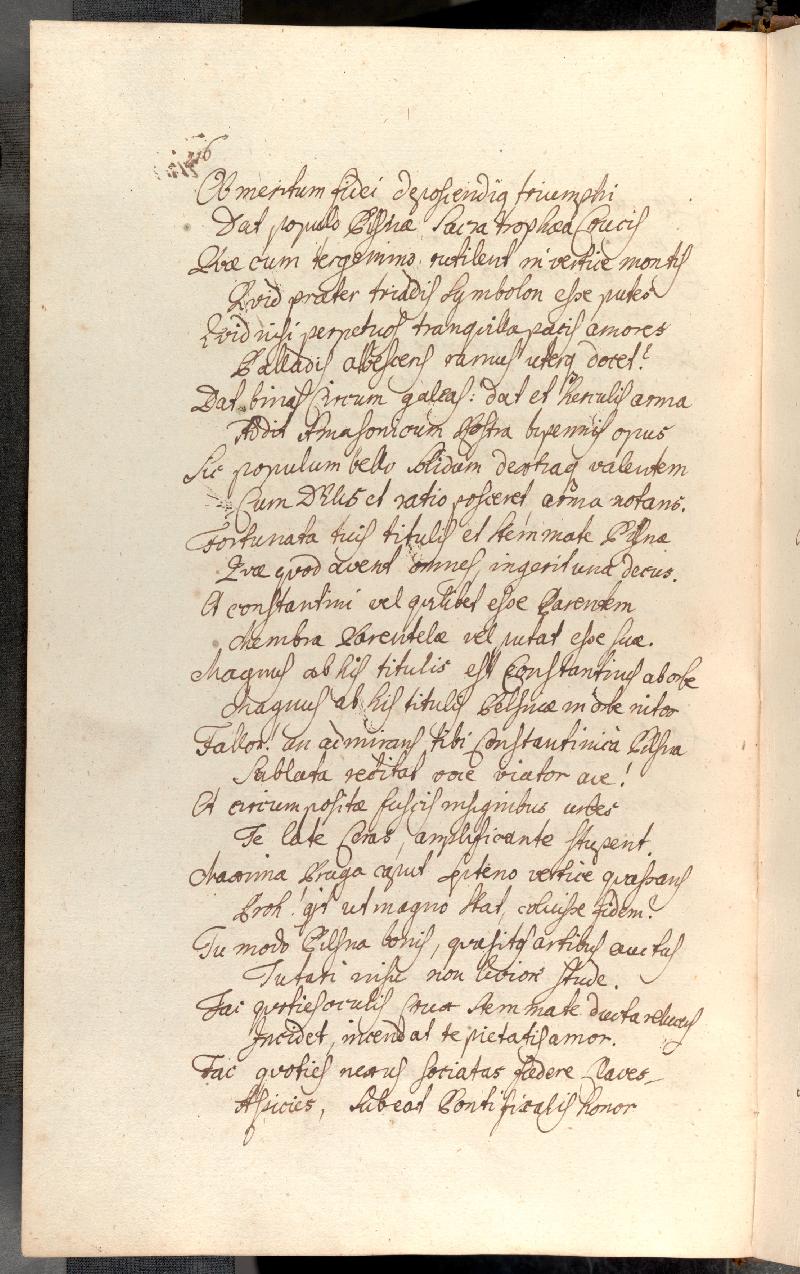 Ob meritum fidei deposcendiq triumphi
Dat populo Pilsnæ Sacra trophæa Crucis
Qvæ cum tergemino rutilent in vertice montis
Qvid præter triadis Symbolon esse putes
Qvid nisi perpetuos tranquilla pacis amores
Palladis albescens ramus uterq docet?
Dat binas Circum galeas: dat et Herculis arma
Addit Amasonicum Rostra bipennis opus
Sic populum bello Solidum dextraq valentem
Cum et ratio posceret, arma notans.
Fortunata tuis titulis et stemmate Pilsna
Qvæ quod avent omnes, ingerit una decus.
Et constantini vel quilibet esse Parentem
Membra Parentelæ vel putat esse suæ.
Magnus ab his titulis est Constantinus ab orbe
Magnus ab his titulis Pelsnæ in orbe nitor
Fallor! an admirans tibi Constantinica Pilsna
Sublata recitat voce viator ave!
Et circumpositæ fuscis insignibus urbes
Te late Ceras, amplificante stupent.
Maxima Praga caput Septeno vertice quassans
Proh! ait ut magno stat, coluisse fidem?
Tu modo Pilsna bonis, quæsitos artibus auctus
Tutari nisu non leviore stude.
Fac quoties oculis Crux stemmate ducta relucens
Incidet, incendat te pietatis amor.
Fac quoties nexus sociatas fœdere Claves
Aspicies, subeat Pontificalis honor